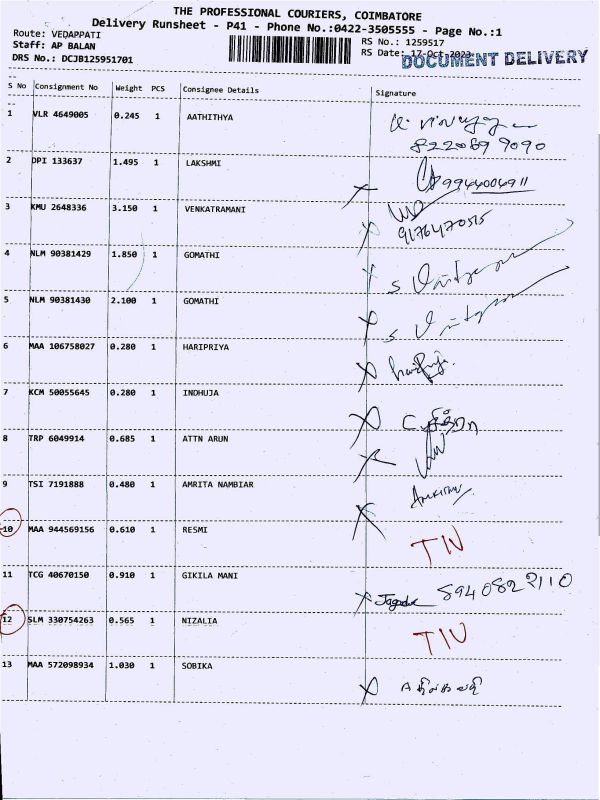 THE PROFESSIONAL COURIERS, COIMBATORE
Delivery Runsheet - P41 - Phone No.:0422-3505555 - Page No.:1
Route: VEDAPPATI
Staff: AP BALAN
DRS No.: DCJB125951701
RS No.: 1259517
RS Date: 17-Oct-2023
DOCUMENT DELIVERY
S No Consignment No Weight PCS Consignee Details Signature
1 VLR 4649005 0.245 1 AATHITHYA
8220899090
2 DPI 133637 1.495 1 LAKSHMI
9944004911
3 KMU 2648336 3.150 1 VENKATRAMANI
9176470515
4 NLM 90381429 1.850 1 GOMATHI
5 NLM 90381430 2.100 1 GOMATHI
6 MAA 106758027 0.280 1 HARIPRIYA
7 KCM 50055645 0.280 1 INDHUJA
8 TRP 6049914 0.685 1 ATTN ARUN
9 TSI 7191888 0.480 1 AMRITA NAMBIAR
10 MAA 944569156 0.610 1 RESMI
11 TCG 40670150 0.910 1 GIKILA MANI
8940822110
12 SLM 330754263 0.565 1 NIZALIA
13 MAA 572098934 1.030 1 SOBIKA